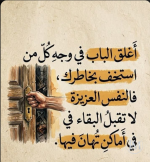 أَغلق الباب في وجهِ كلّ من
استخف بخاطرك،
فالنفس العزيزة
لا تقبلُ البقاء في
في أماكنٍ تُهانَ فيها.